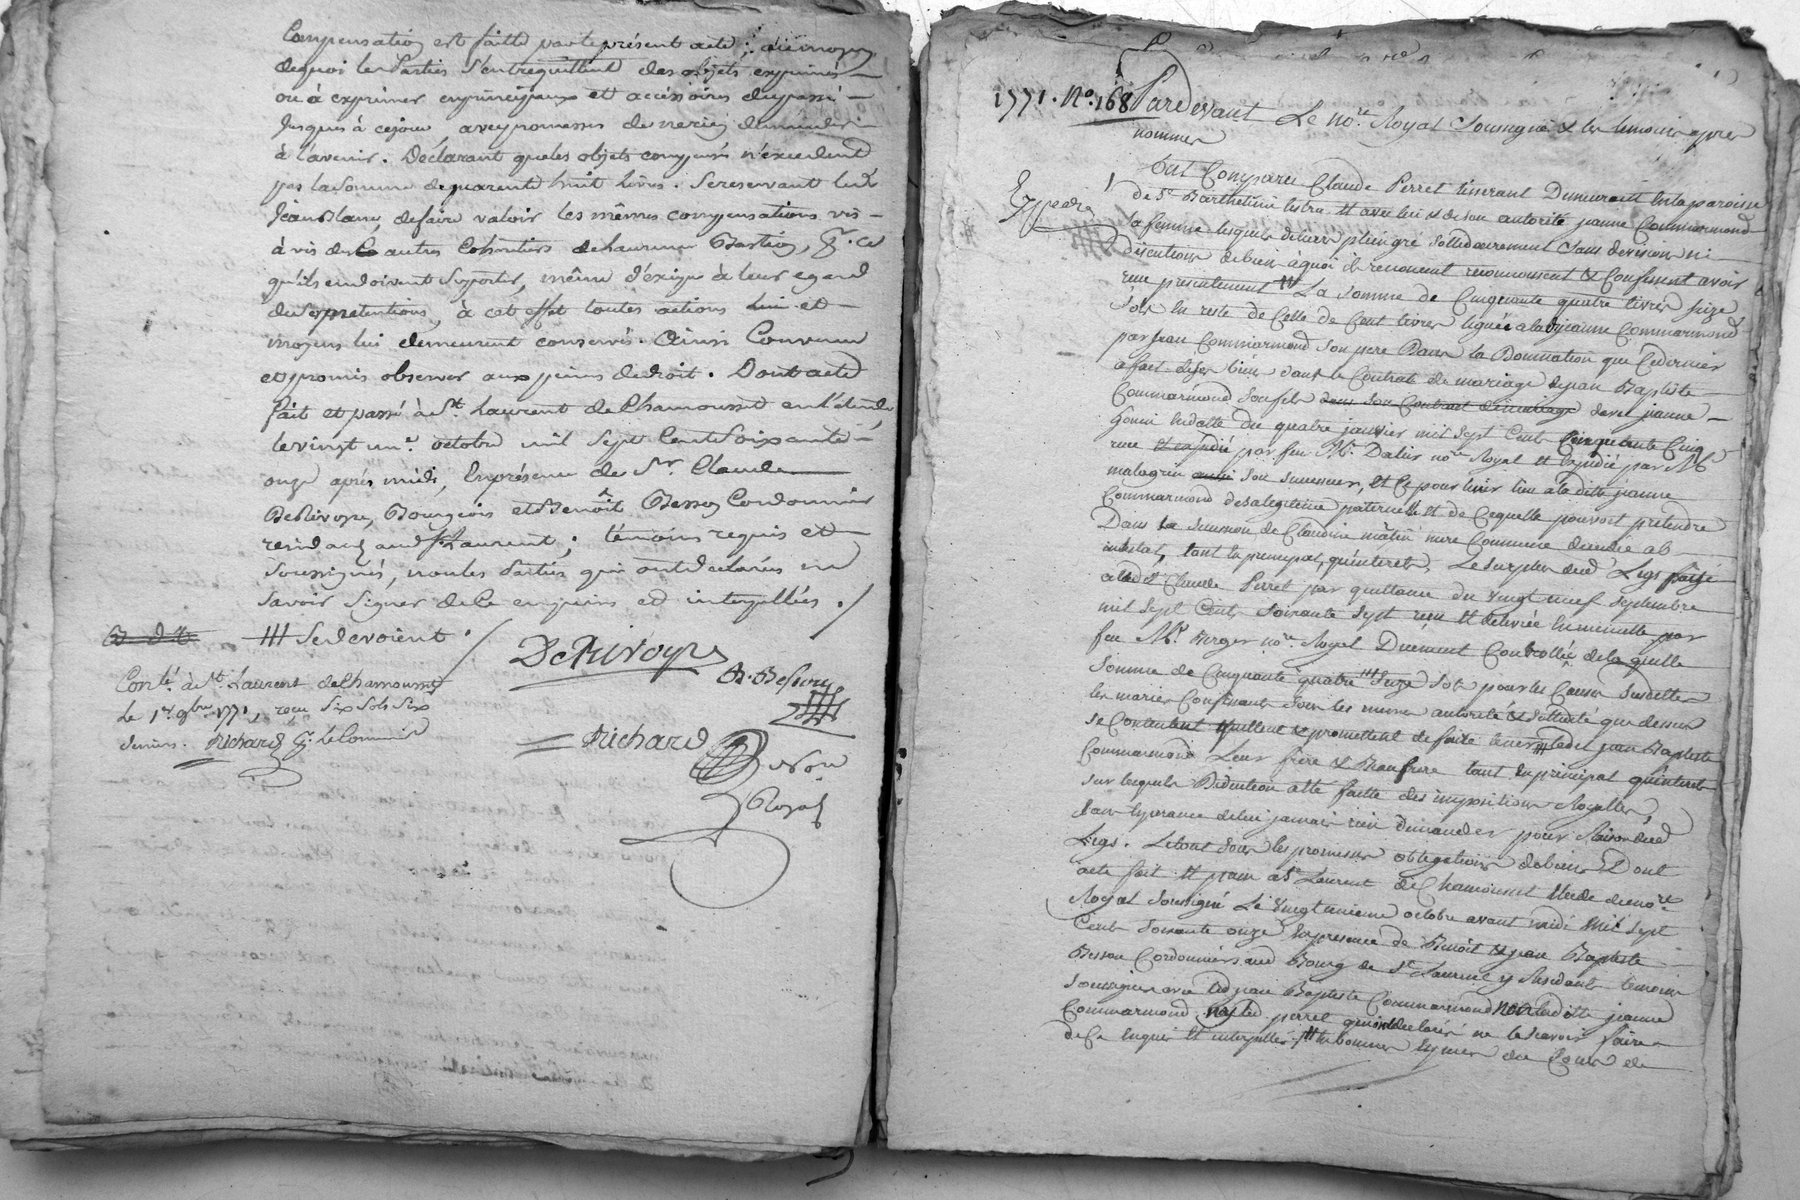 Compensation est faitte par le présent acte; au moyen
de quoi les Parties S'entrequittent des objets exprimés
ou à exprimer en principaux et accéssoires du passé
Jusques à ce jour, avec promesses de ne rien demander
à l'avenir. Déclarant que les objets compensés n'excedent
pas la Somme de quarente huit livres. Se reservant led.t
Jean Blanc, de faire valoir les mêmes compensations vis-
à vis des autres Cohéritiers de Bastien, &. ce
qu'ils en doivent suporter, même d'éxiger à leur egard
des prétentions, à cet effet toutes actions lui et
moyens lui demeurent conservés. Ainsi Convenu
et promis observer aux peines de droit. Dont acte
fait et passé à St. Laurent de Chamousset en l'étude
le vingt un.e octobre mil Sept Cent Soixante-
onze après midi, En présence de S.r Claude
DeRivoyre, Bourgeois et Benoît Besson Cordonnier
résid.ans aud. St Laurent; témoins requis et
soussignés, non les Parties qui ont declarées ne
savoir signer de Ce enquises et interpellées ./
/// Se devoient ./
DeRivoyre
B. Besson
Cont.é à St. Laurent de Chamousset
Le 1.er 9bre 1771, recu Six Sols Six
deniers. Richard
Richard
Not.re
Royal
1771. N.o 168 Pardevant Le no.re Royal Soussigné & les temoins apres
nommes
Expedié
Ont Comparu Claude Perret tisserant Demeurant en la paroisse
de S.t Barthelemi lestra et avec lui et de son autorité jeanne Commarmond
sa femme lesquels de leur plein gré sollidairement sans division ni
discution de bien à quoi ils renoncent reconnoissent et Confessent avoir
reçu presentement /// La somme de Cinquante quatre livres seize
Sols en reste de Celle de Cent livres leguée a ladite jeanne Commarmond
par jean Commarmond son pere Dans la Donnation que Ce dernier
a fait de ses biens dans le Contrat de mariage de jean Baptiste
Commarmond son fils dans son Contrat de mariage avec jeanne
Gonin en datte du quatre janvier mil Sept Cent Cinquante Cinq
recu et expedié par feu M.e Dalix no.re Royal et Expedié par M.e
malagrin aussi son successeur, et Ce pour tenir lieu a la ditte jeanne
Commarmond de sa legitime paternelle et de Ce quelle pouvoit pretendre
Dans la succession de Claudine mâtin mere Commune decedée ab-
intestat, tant en principal, qu'interets, Le surplus dud. Legs payé
aud. Claude Perret par quittance du vingt neuf septembre
mil Sept Cent Soixante Sept recu et delivrée en minutte par
feu M.e Berger no.re Royal Duement Controllée de laquelle
Somme de Cinquante quatre /// Seize Sols pour les Causes Susdittes
les mariés Confessants sous les mesmes autorité et sollidité que dessus
se Contentent quittent et promettent de faire tenir quitte led. jean Baptiste
Commarmond Leur frere et Beaufrere tant en principal qu'interets
sur lesquels Deduction a été faitte des impositions Royalles,
sans Esperance de lui jamais rien demander pour Raison dud.
Legs. Le tout sous les promesses obligations de biens &. Dont
acte fait et passé a S.t Laurent de Chamousset Etude du no.re
Royal soussigné Le vingt unieme octobre avant midi Mil Sept
Cent Soixante onze En presence de Benoit et jean Baptiste
Besson Cordonniers aud. Bourg de S.t Laurent y Residants temoins
soussignés avec led. jean Baptiste Commarmond non laditte jeanne
Commarmond ny led. perret qui ont declarés ne le scavoir faire
de Ce Enquis et interpellés. /// en bonnes Especes du Cours de